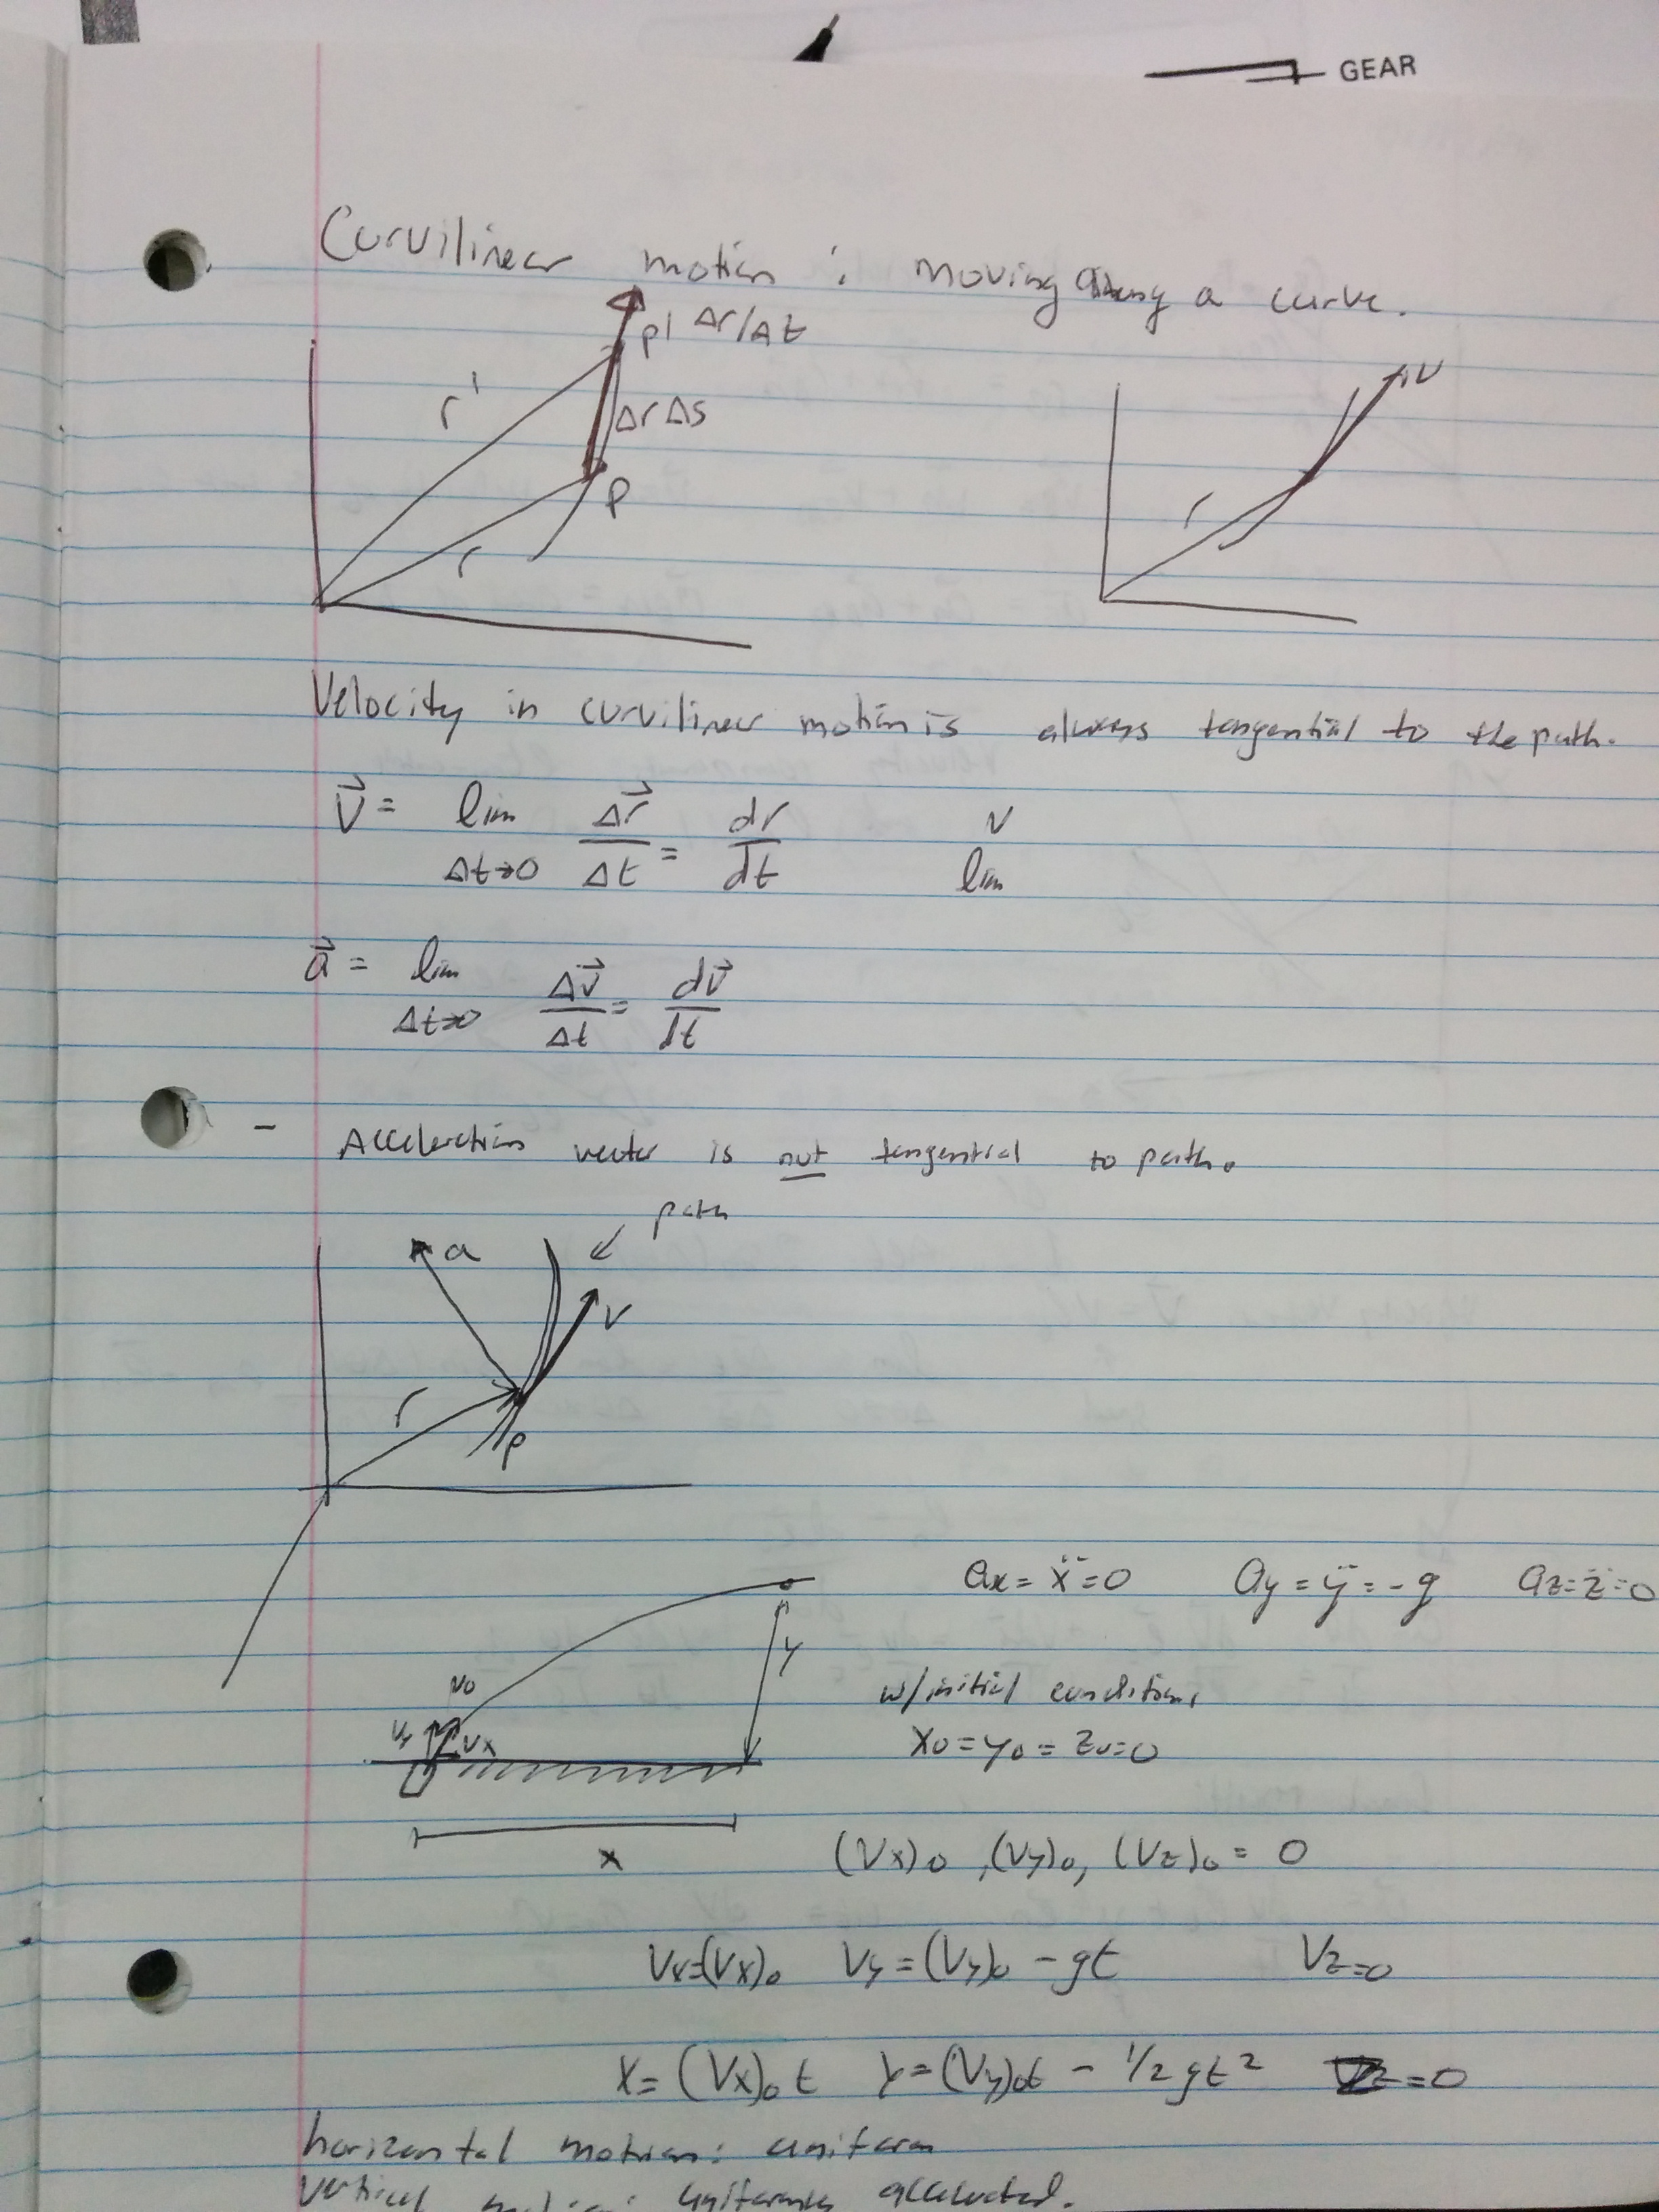 GEAR
Curvilinear motion : moving along a curve.
p' Δr/Δt
r'
Δr Δs
p
r
v
r
Velocity in curvilinear motion is always tangential to the path.
V⃗ = lim Δt→0 Δr⃗/Δt = dr/dt
v
lim
a⃗ = lim Δt→0 Δv⃗/Δt = dv⃗/dt
- Acceleration vector is not tangential to path.
path
a
v
r
p
ax = ẍ = 0 ay = ÿ = -g az = z̈ = 0
y
v0
w/initial conditions
Vy Vx
x0 = y0 = z0 = 0
x
(Vx)0 , (Vy)0, (Vz)0 = 0
Vx=(Vx)0 Vy = (Vy)0 - gt Vz=0
x = (Vx)0 t y = (Vy)0t - 1/2 gt² = 0
horizontal motion: uniform
vertical motion: uniformly accelerated.